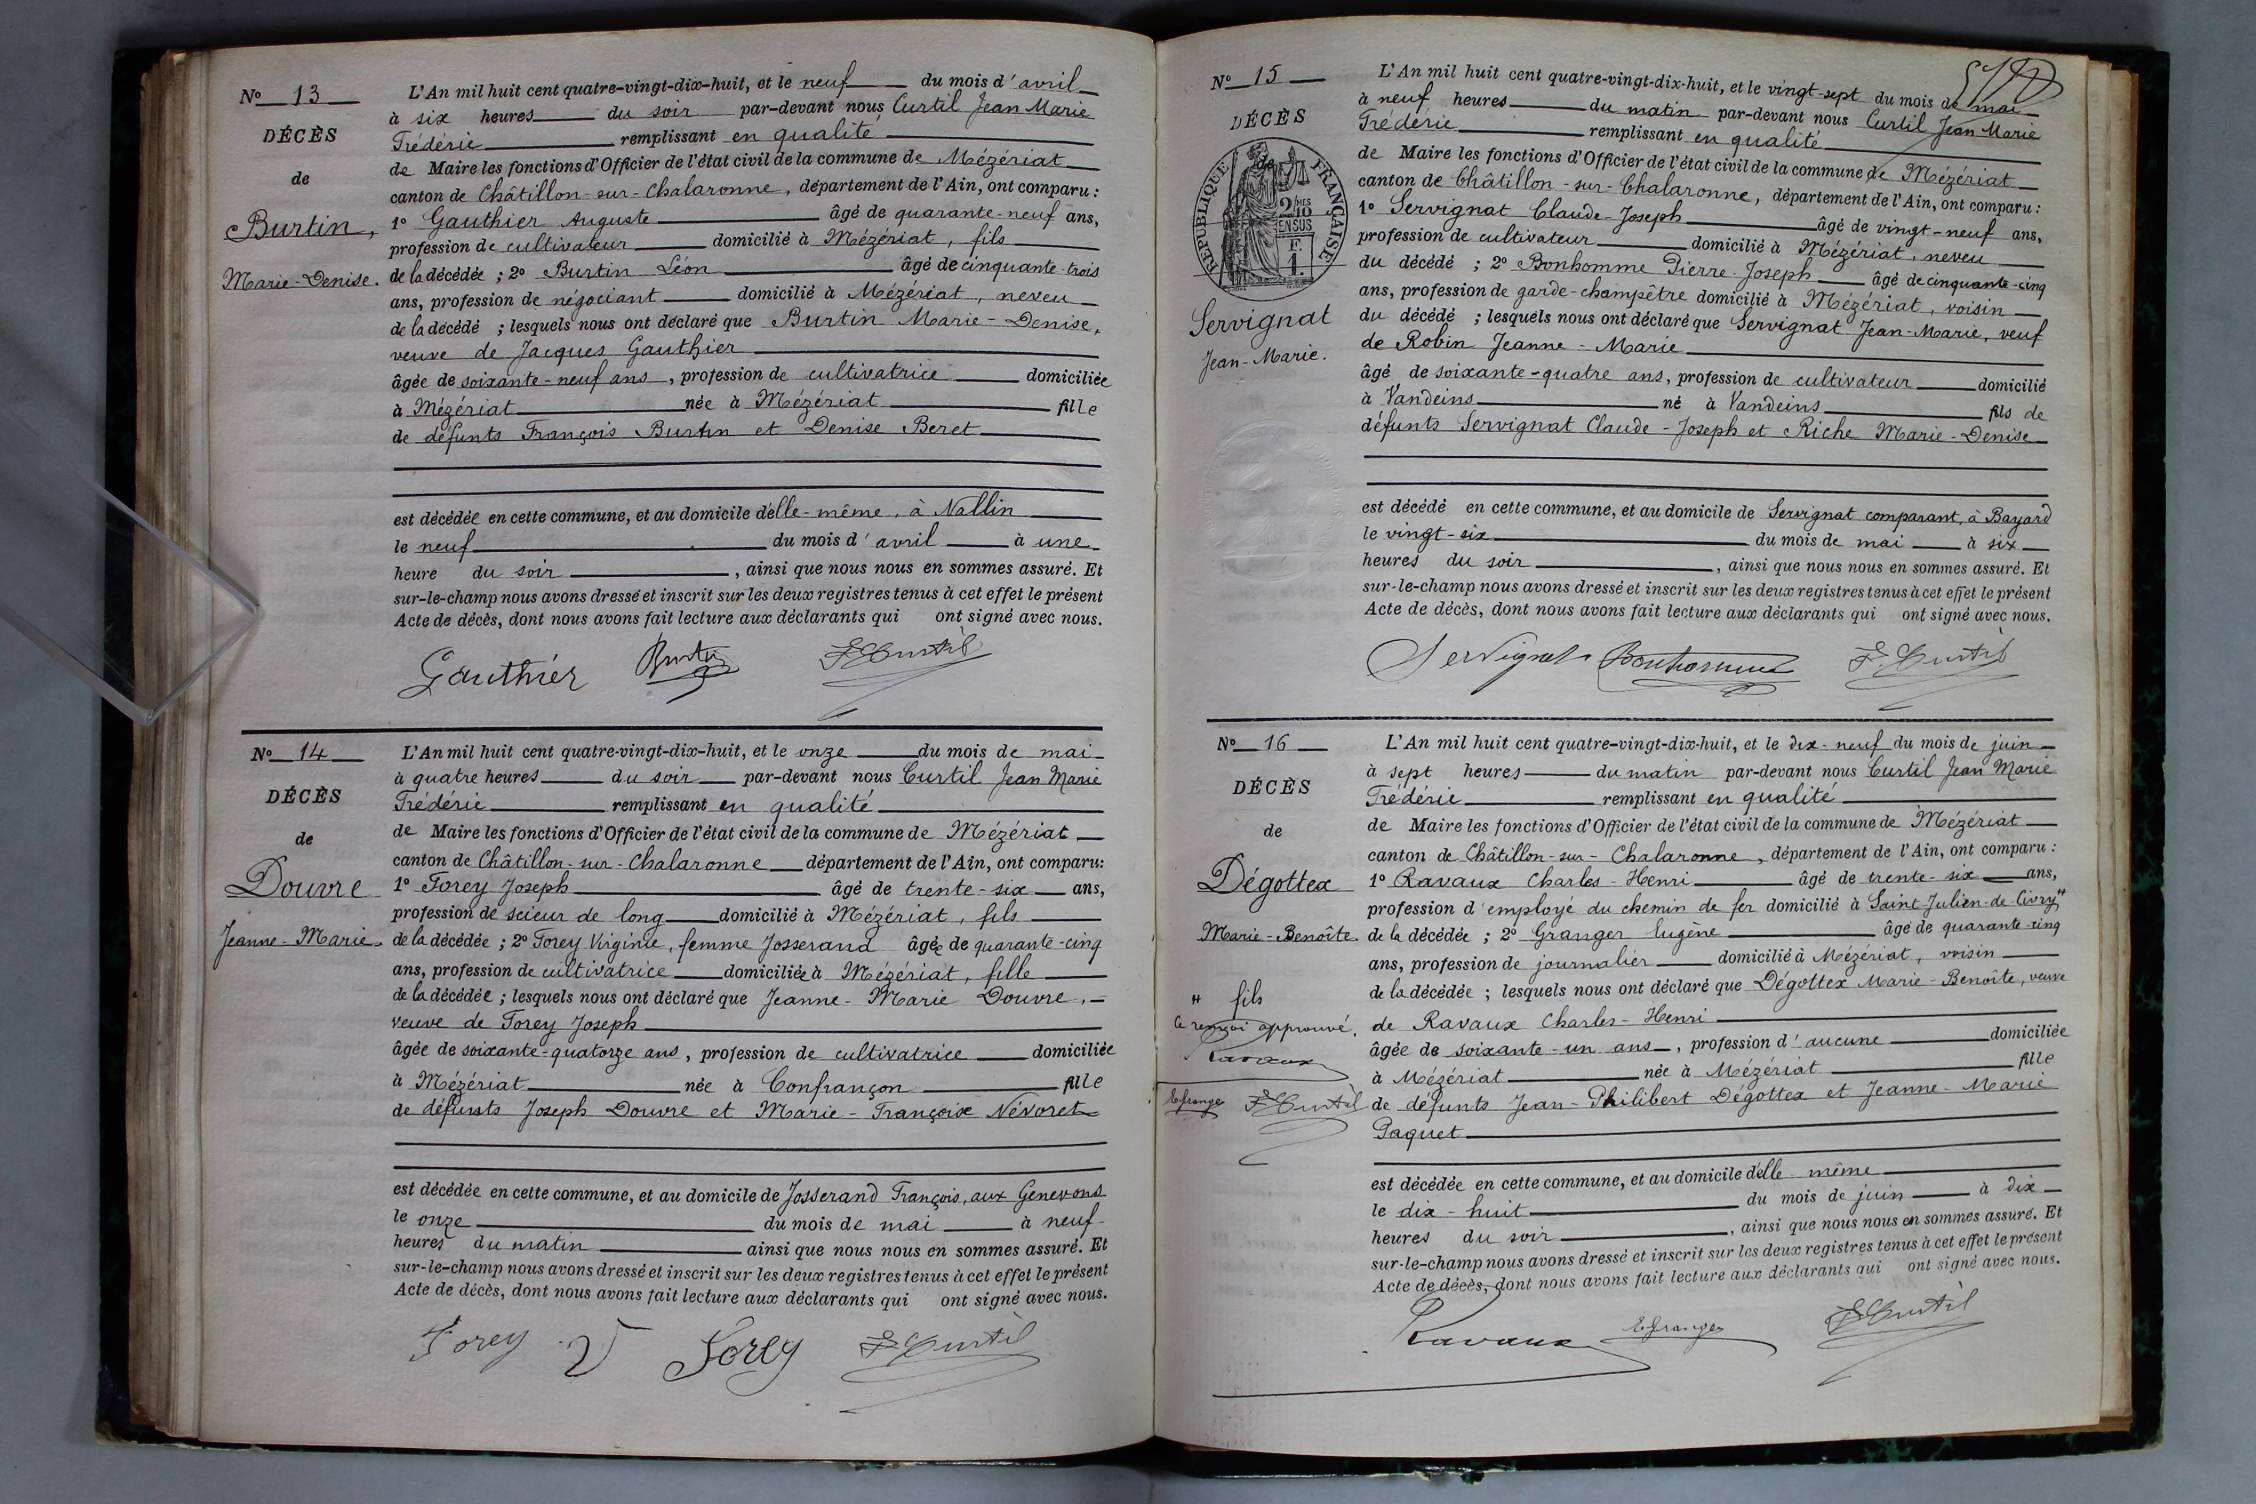 N° 13
DÉCÈS
de
Burtin,
Marie-Denise.
L'An mil huit cent quatre-vingt-dix-huit, et le neuf du mois d'avril
à six heures du soir par-devant nous Curtil Jean Marie
Frédéric remplissant en qualité
de Maire les fonctions d'Officier de l'état civil de la commune de Mézériat
canton de Châtillon-sur-Chalaronne, département de l'Ain, ont comparu :
1° Gauthier Auguste âgé de quarante-neuf ans,
profession de cultivateur domicilié à Mézériat, fils
de la décédée ; 2° Burtin Léon âgé de cinquante-trois
ans, profession de négociant domicilié à Mézériat, neveu
de la décédé ; lesquels nous ont déclaré que Burtin Marie-Denise,
veuve de Jacques Gauthier
âgée de soixante-neuf ans, profession de cultivatrice domiciliée
à Mézériat née à Mézériat fille
de défunts François Burtin et Denise Beret
est décédée en cette commune, et au domicile d'elle-même, à Nallin
le neuf du mois d'avril à une
heure du soir, ainsi que nous nous en sommes assuré. Et
sur-le-champ nous avons dressé et inscrit sur les deux registres tenus à cet effet le présent
Acte de décès, dont nous avons fait lecture aux déclarants qui ont signé avec nous.
Gauthier Burtin F Curtil
N° 14
DÉCÈS
de
Douvre
Jeanne-Marie.
L'An mil huit cent quatre-vingt-dix-huit, et le onze du mois de mai
à quatre heures du soir par-devant nous Curtil Jean Marie
Frédéric remplissant en qualité
de Maire les fonctions d'Officier de l'état civil de la commune de Mézériat
canton de Châtillon-sur-Chalaronne département de l'Ain, ont comparu :
1° Forey Joseph âgé de trente-six ans,
profession de scieur de long domicilié à Mézériat, fils
de la décédée ; 2° Forey Virginie, femme Josserand âgée de quarante-cinq
ans, profession de cultivatrice domiciliée à Mézériat, fille
de la décédée ; lesquels nous ont déclaré que Jeanne-Marie Douvre,
veuve de Forey Joseph
âgée de soixante-quatorze ans, profession de cultivatrice domiciliée
à Mézériat née à Confrançon fille
de défunts Joseph Douvre et Marie-Françoise Névoret
est décédée en cette commune, et au domicile de Josserand François, aux Genevons
le onze du mois de mai à neuf
heures du matin ainsi que nous nous en sommes assuré. Et
sur-le-champ nous avons dressé et inscrit sur les deux registres tenus à cet effet le présent
Acte de décès, dont nous avons fait lecture aux déclarants qui ont signé avec nous.
Forey V Forey F Curtil
N° 15
DÉCÈS
de
RÉPUBLIQUE FRANÇAISE
2/10 EN SUS
F. 1.
Servignat
Jean-Marie.
L'An mil huit cent quatre-vingt-dix-huit, et le vingt-sept du mois de mai
à neuf heures du matin par-devant nous Curtil Jean Marie
Frédéric remplissant en qualité
de Maire les fonctions d'Officier de l'état civil de la commune de Mézériat
canton de Châtillon-sur-Chalaronne, département de l'Ain, ont comparu :
1° Servignat Claude-Joseph âgé de vingt-neuf ans,
profession de cultivateur domicilié à Mézériat, neveu
du décédé ; 2° Bonhomme Pierre-Joseph âgé de cinquante-cinq
ans, profession de garde-champêtre domicilié à Mézériat, voisin
du décédé ; lesquels nous ont déclaré que Servignat Jean-Marie, veuf
de Robin Jeanne-Marie
âgé de soixante-quatre ans, profession de cultivateur domicilié
à Vandeins né à Vandeins fils de
défunts Servignat Claude-Joseph et Riche Marie-Denise
est décédé en cette commune, et au domicile de Servignat comparant, à Bayard
le vingt-six du mois de mai à six
heures du soir, ainsi que nous nous en sommes assuré. Et
sur-le-champ nous avons dressé et inscrit sur les deux registres tenus à cet effet le présent
Acte de décès, dont nous avons fait lecture aux déclarants qui ont signé avec nous.
Servignat Bonhomme F Curtil
N° 16
DÉCÈS
de
Dégottex
Marie-Benoîte.
" fils
Ce renvoi approuvé.
Ravaux
EGranger F Curtil
L'An mil huit cent quatre-vingt-dix-huit, et le dix-neuf du mois de juin
à sept heures du matin par-devant nous Curtil Jean Marie
Frédéric remplissant en qualité
de Maire les fonctions d'Officier de l'état civil de la commune de Mézériat
canton de Châtillon-sur-Chalaronne, département de l'Ain, ont comparu :
1° Ravaux Charles-Henri âgé de trente-six ans,
profession d'employé du chemin de fer domicilié à Saint-Julien-de-Civry "
de la décédée ; 2° Granger Eugène âgé de quarante-cinq
ans, profession de journalier domicilié à Mézériat, voisin
de la décédée ; lesquels nous ont déclaré que Dégottex Marie-Benoîte, veuve
de Ravaux Charles-Henri
âgée de soixante-un ans, profession d'aucune domiciliée
à Mézériat née à Mézériat fille
de défunts Jean-Philibert Dégottex et Jeanne-Marie
Paquet
est décédée en cette commune, et au domicile d'elle-même
le dix-huit du mois de juin à dix
heures du soir, ainsi que nous nous en sommes assuré. Et
sur-le-champ nous avons dressé et inscrit sur les deux registres tenus à cet effet le présent
Acte de décès, dont nous avons fait lecture aux déclarants qui ont signé avec nous.
Ravaux EGranger F Curtil